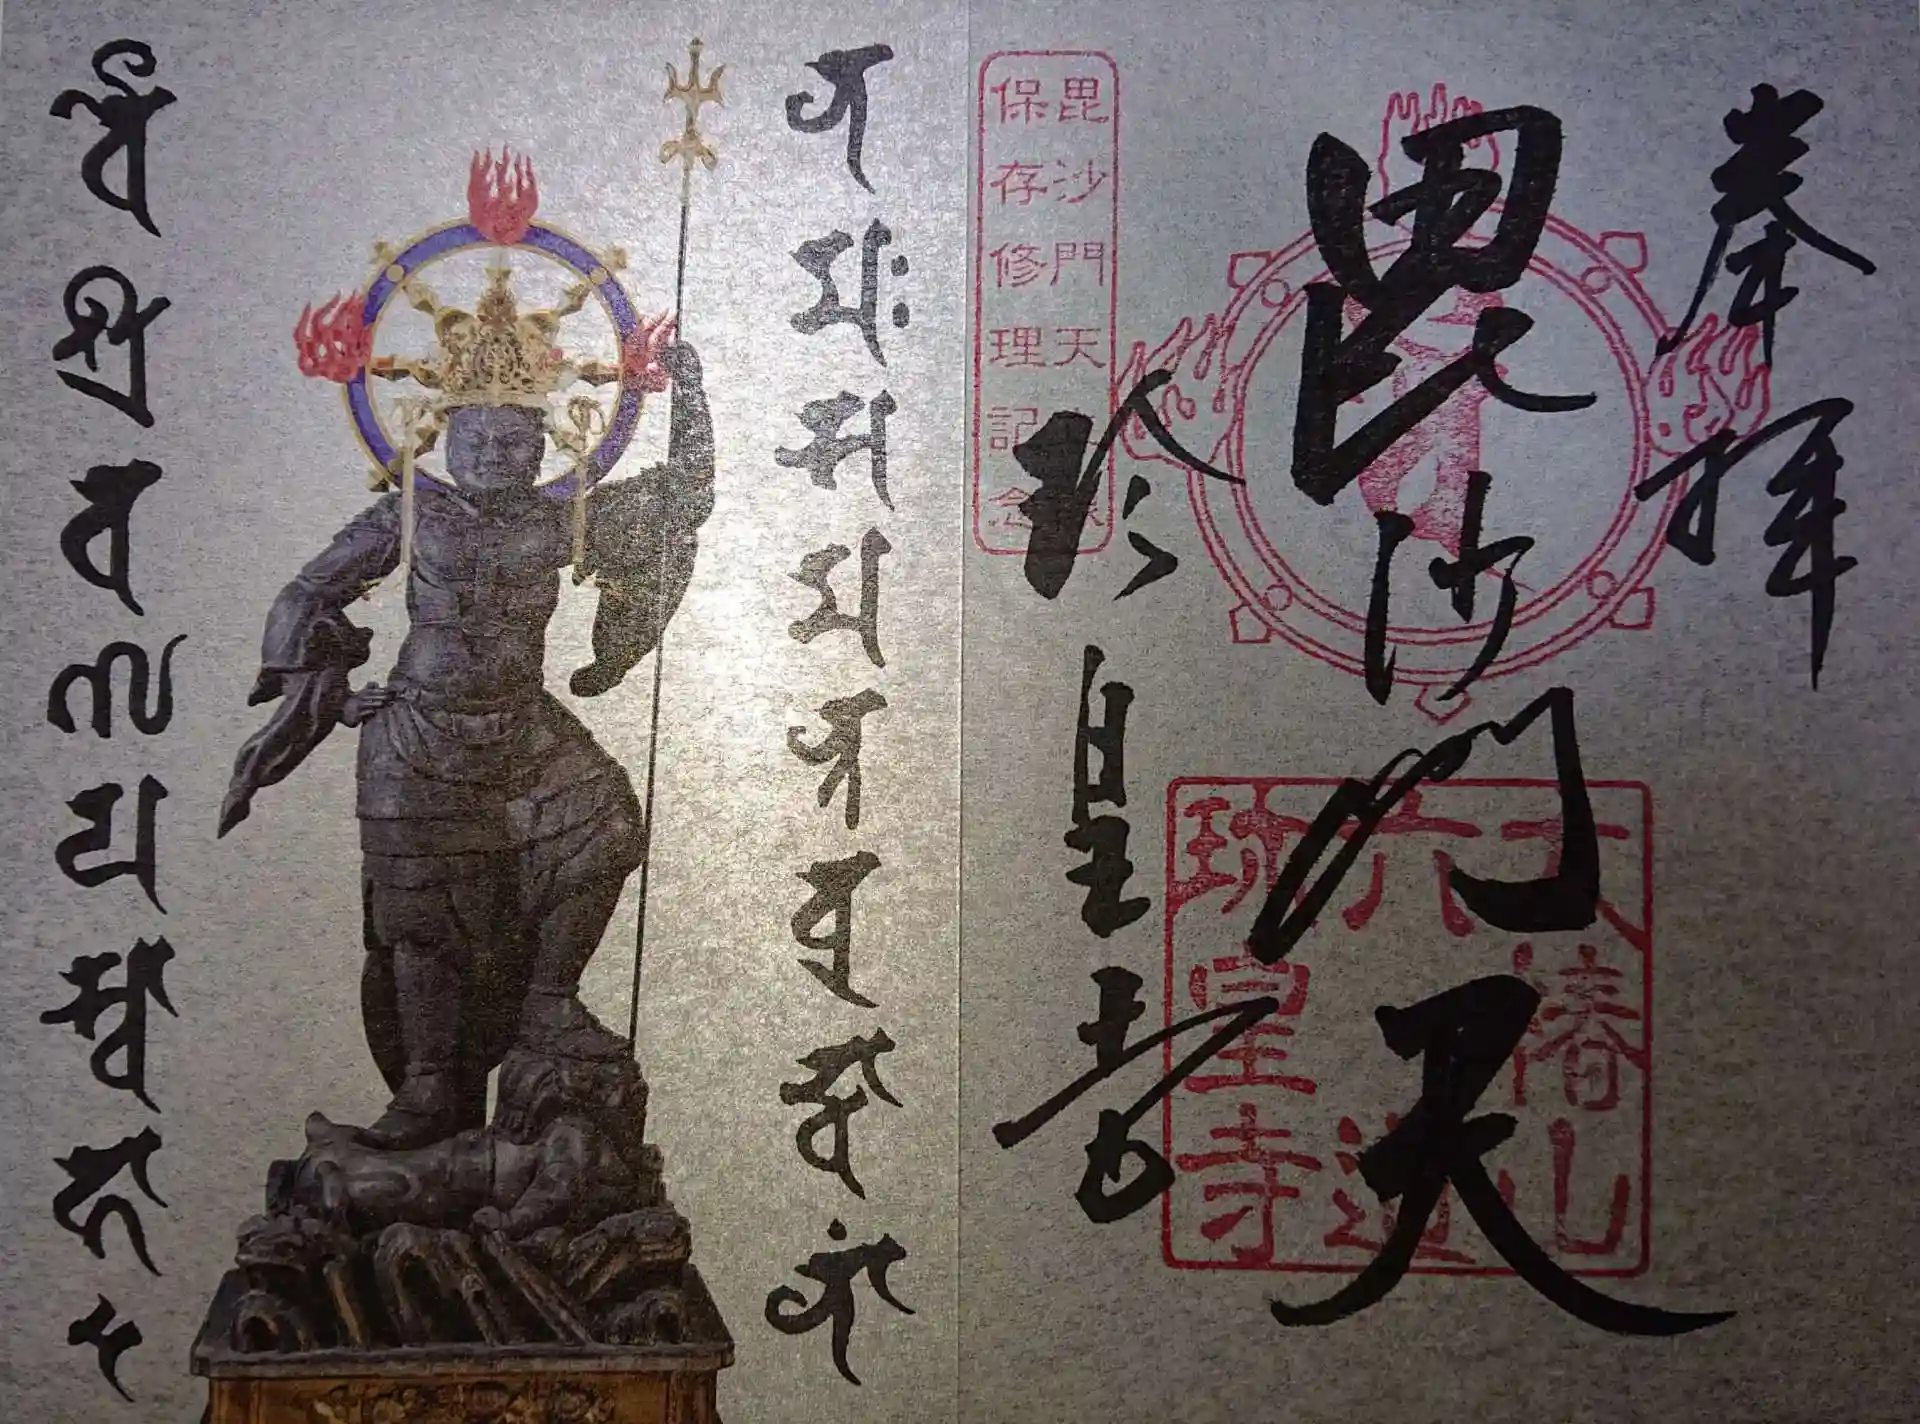 奉拝
毘沙門天
珍皇寺
大椿山
六道
珍皇寺
毘沙門天
保存修理記念
𑖡𑖦𑖾𑖭𑖦𑖡𑖿𑖝𑖤𑖲𑖟𑖿𑖠𑖯𑖡𑖯𑖽
𑖪𑖹𑖫𑖿𑖨𑖪𑖜𑖧𑖭𑖿𑖪𑖯𑖮𑖯